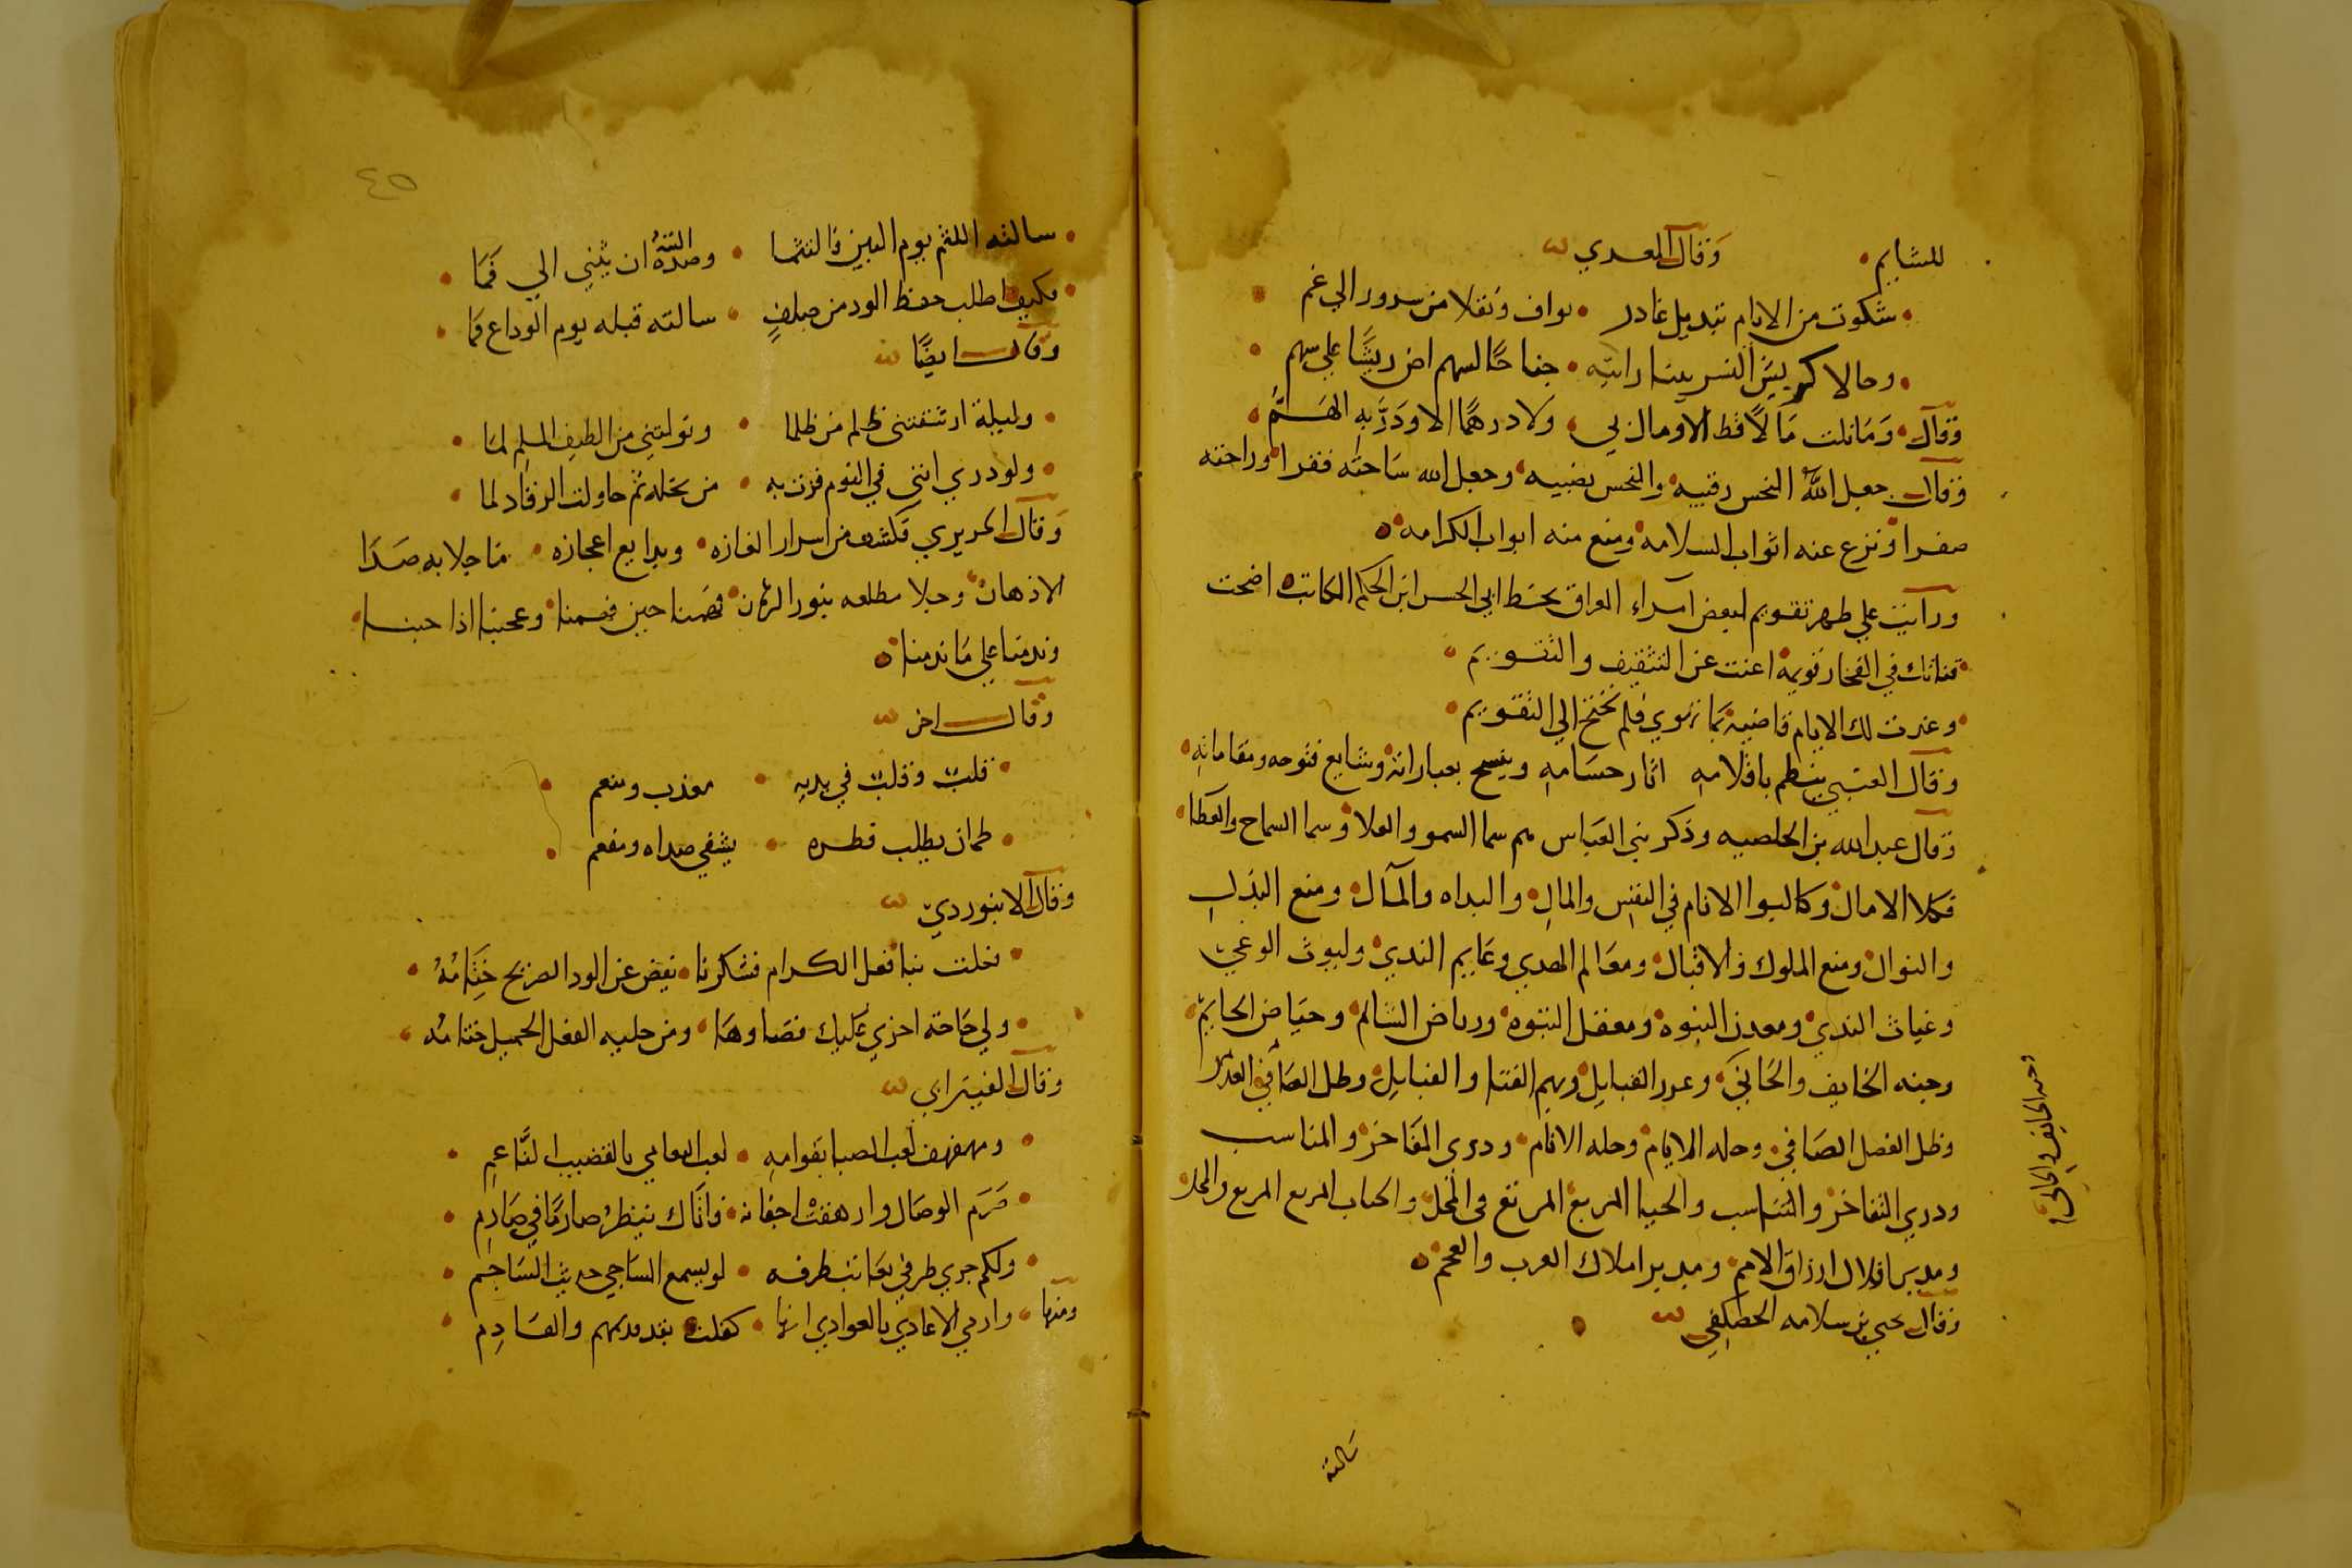 للشايم • وقال المعدي
• شكوت من الايام تبديل غادر • بواف ونقلا من سرور الي غم •
• وحالا كريش النسر بينا رايته • جناحًا لسهم اض ريشًا علي سهم •
وقال • وَمَا نلت مَالًا قط الا ومال بي • ولا درهمًا الا ودَرَّ به الهَمُّ •
وقال جعل الله النحس رقيبه والنحس نصيبه وجعل الله ساحته قفرا وراحته
صفرا ونزع عنه اثواب السلامه ومنع منه ابواب الكرامه ه
ورايت علي ظهر تقويم لبعض امراء العراق بخط ابي الحسن ابن الكاتب اضحت
• قناتك في الفخار قويمة اغنت عن التثقيف والتقويم •
• وغدت لك الايام قاضية بما تهوي فلم تحتج الي التقويم •
وقال العتبي ينظم باقلامه اثار حسامه وبعباراته وشايع فتوحه ومقاماته •
وقال عبد الله بن وذكر بني العباس هم سما السمو والعلا وسما السماح والعطا •
الامال الانام في النفس والمال • والمآل ومنع البذل
والنوال ومنع الملوك والاقيال ومعالم الهدي وغمايم الندي وليوث الوغي
وغياث الندي ومعدن النبوه ومعقل الفتوه ورياض الشايم وحياض الحايم •
وجنه الخايف والجاني وغرر القبايل وبهم القنا والقنابل وظل
وظل الفضل الصافي وحله الايام وحله الانام ودري المفاخر والمناسب
ودري التفاخر والتناسب والحيا المربع المرتع في المحل والجناب المريع
ومدبر افلاك ارزاق الامم ومدير املاك العرب والعجم ه
وقال يحيي بن سلامه الحصكفي
وجنه الخايف والجاني
سالته
٤٥
• سالته اللثم يوم البين فالتثما • وصده التيه ان يثني الي فما •
• وكيف اطلب حفظ الود من صلفٍ • سالته قبله يوم الوداع فما •
وقال ايضًا
• وليلة ارشفتني ظلم من ظلما • ونولتني من الطيف الملم لما •
• ولو دري انني في النوم فزت به • من بخله ثم حاولت الرقاد لما •
وقال الحريري فكشف من اسرار الغازه • وبدايع اعجازه • ما جلا به صدا
الاذهان وجلا مطلعه بنور البرهان فهمنا حين فهمنا وعجبنا اذا
وندمنا علي ما ندمنا ه
وقال اخر
• قلبت وقلبت في يديه • معذب ومنعم •
• ظمان يطلب قطره • يشفي صداه ومفعم •
وقال الابيوردي
• فحلت بنا فعل الكرام فشكرنا • نفض عن الود الصريح ختامه •
• ولي حاجة احزي عليك قضاوها • ومن حليه الفعل الجميل ختامه •
وقال القيسراني
• ومهفهف لعب الصبا بقوامه • لعب النعامي بالقضيب الناعم •
• صرم الوصال وارهفت اجفانه • فاتاك ينظر صارمًا في صارم •
• ولكم جري طرفي يعاتب طرفه • لو يسمع الساجي حديث الساجم •
ومنها • وارمي الاعادي بالعوادي انها • كفلت بقدومهم والقادم •